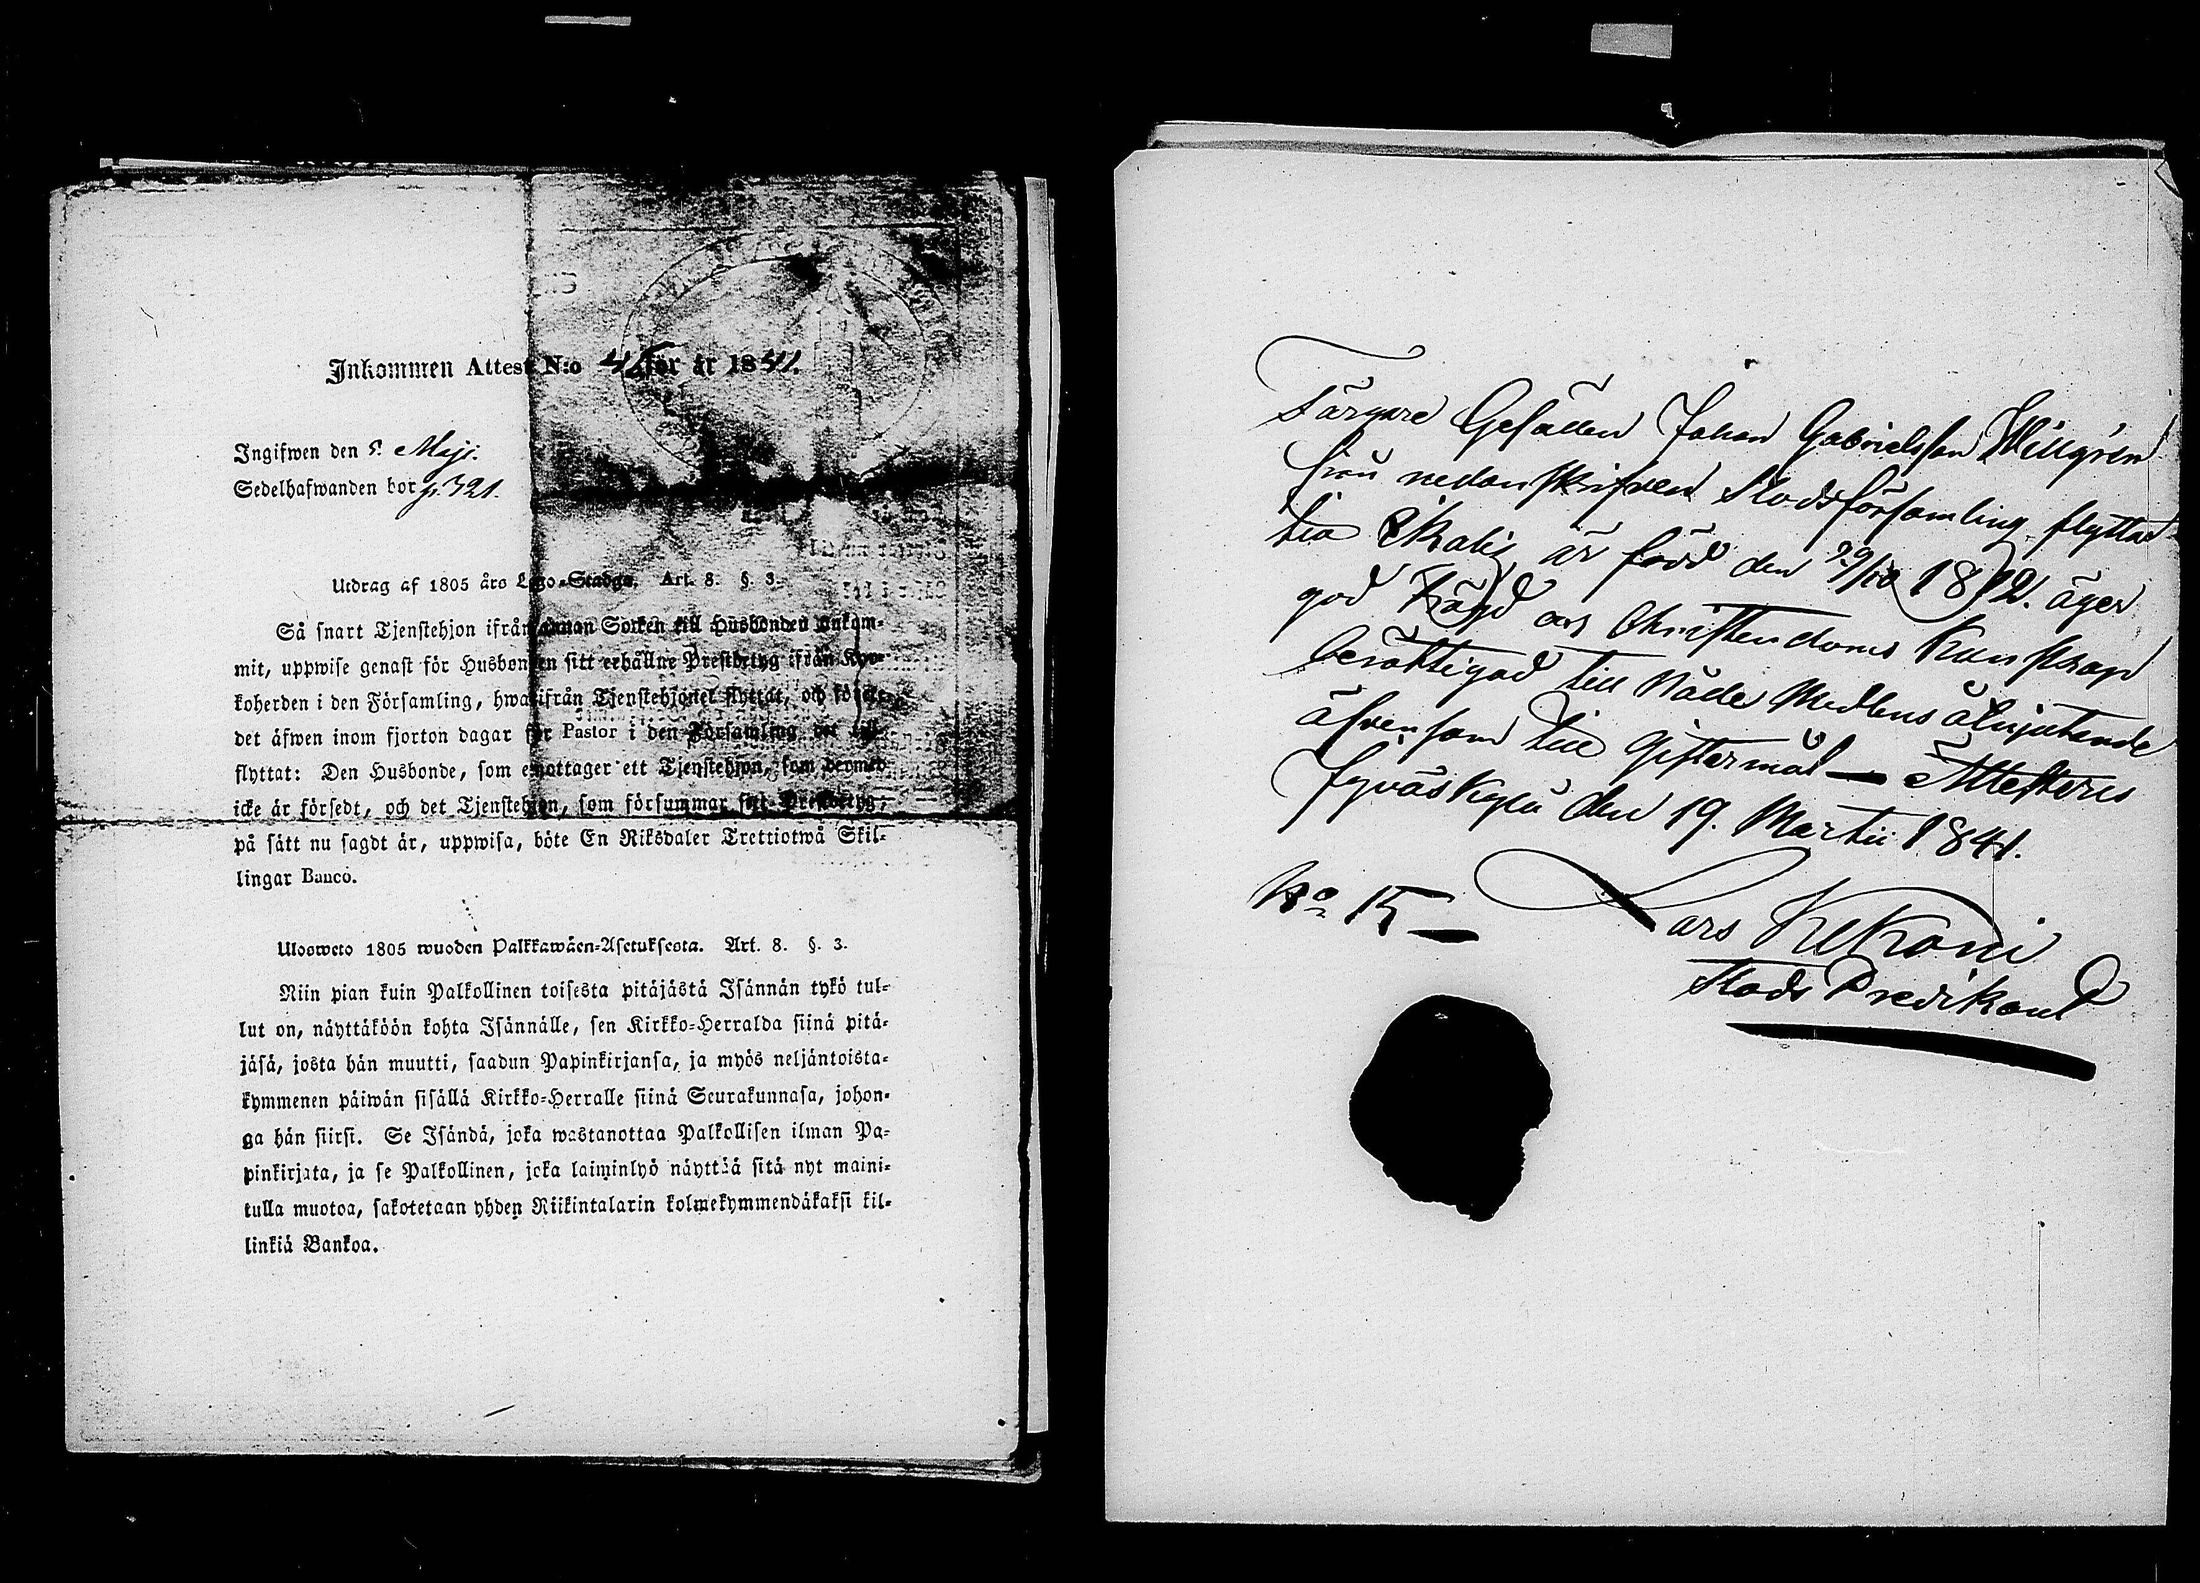 Inkommen Attest N:o 45 för år 1841.
Ingifwen den 5. Maji.
Sedelhafwanden bor p. 321.
Utdrag af 1805 års Lego-Stadga. Art. 8. §. 3.
Så snart Tjenstehjon ifrån annan Socken till Husbonden ankom-
mit, uppwise genast för Husbonden sitt erhållne Prestbetyg ifrån Kyr-
koherden i den Församling, hwarifrån Tjenstehjonet flyttat, och
det äfwen inom fjorton dagar för Pastor i den Församling, dit
flyttat: Den Husbonde, som emottager ett Tjenstehjon, som dermed
icke är försedt, och det Tjenstehjon, som försummar sitt Prestbetyg,
på sätt nu sagdt är, uppwisa, böte En Riksdaler Trettiotwå Skil-
lingar Banco.
Ulosweto 1805 wuoden Palkkawäen-Asetuksesta. Art. 8. §. 3.
Niin pian kuin Palkollinen toisesta pitäjästä Isännän tykö tul-
lut on, näyttäköön kohta Isännälle, sen Kirkko-Herralda siinä pitä-
jäsä, josta hän muutti, saadun Papinkirjansa, ja myös neljäntoista-
kymmenen päiwän sisällä Kirkko-Herralle siinä Seurakunnasa, johon-
ga hän siirsi. Se Isändä, joka wastanottaa Palkollisen ilman Pa-
pinkirjata, ja se Palkollinen, joka laiminlyö näyttää sitä nyt maini-
tulla muotoa, sakotetaan yhden Riikintalarin kolmekymmendäkaksi kil-
linkiä Bankoa.
Färgare Gesällen Johan Gabrielsson Hellgrén
från nedanskrifven Stadsförsamling flyttad
till är född den 29/10 1812. äger
god Frägd och Christendoms Kunskap
berättigad till Nåde Medlens åtnjutande
äfvensom till Giftermål — Attesteres
Jyväskylä den 19. Martii 1841.
No 15 — Lars Kekoni
Stads Predikant